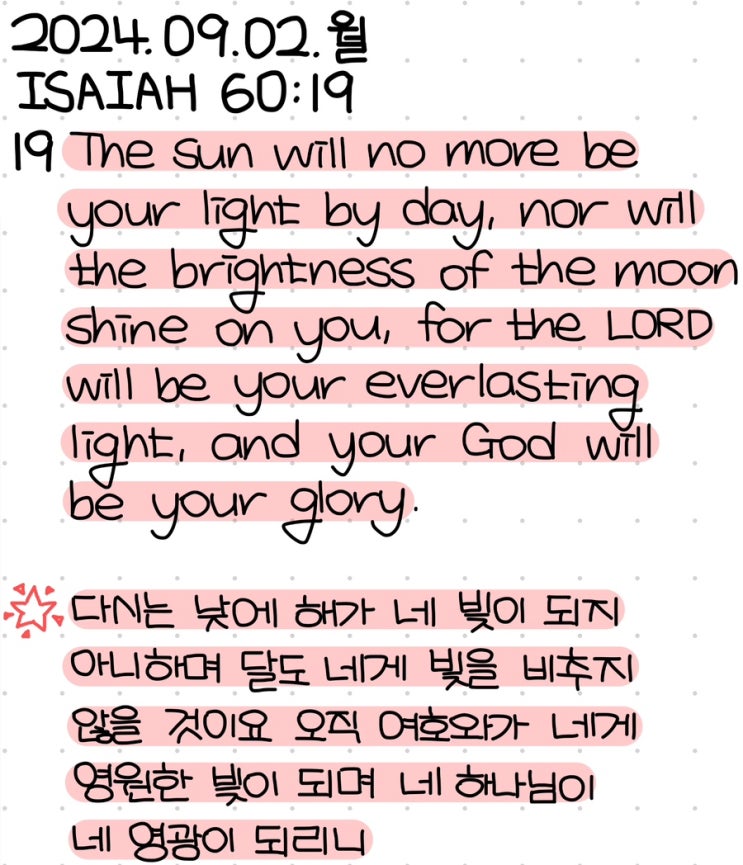 2024.09.02.월
ISAIAH 60:19
19 The sun will no more be
your light by day, nor will
the brightness of the moon
shine on you, for the LORD
will be your everlasting
light, and your God will
be your glory.
다시는 낮에 해가 네 빛이 되지
아니하며 달도 네게 빛을 비추지
않을 것이요 오직 여호와가 네게
영원한 빛이 되며 네 하나님이
네 영광이 되리니